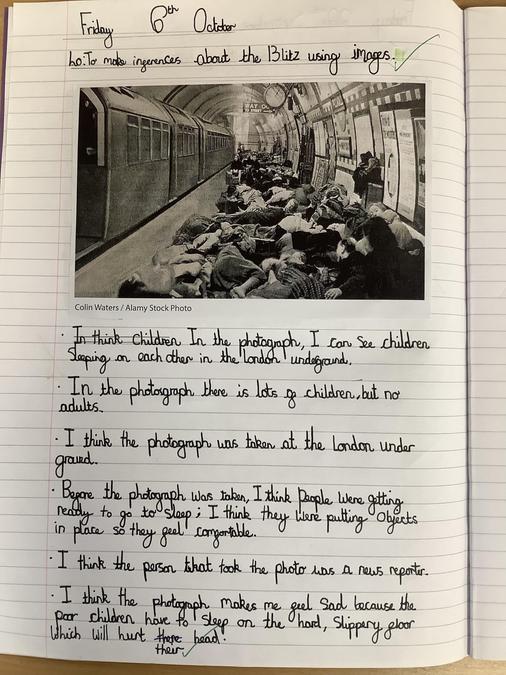 Friday 6th October
Lo: To make inferences about the Blitz using images.
WAY OUT
Colin Waters / Alamy Stock Photo
· In think Children In the photograph, I can see children
sleeping on each other in the London undeground.
· In the photosgraph there is lots of children, but no
adults.
· I think the photograph was taken at the London under
ground.
· Before the photograph was taken, I think People were getting
ready to go to sleep; I think they were putting Objects
in place so they feel comfortable.
· I think the person that took the photo was a news reporter.
· I think the photograph makes me feel sad because the
poor children have to sleep on the hard, slippery floor
which will hurt there head!
their